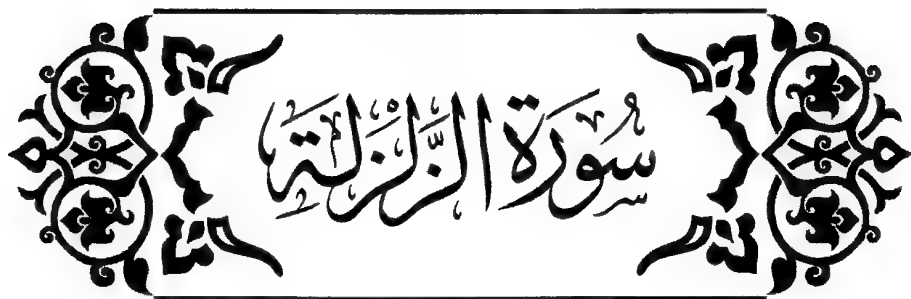 سُورَة الزَّلْزَلَة